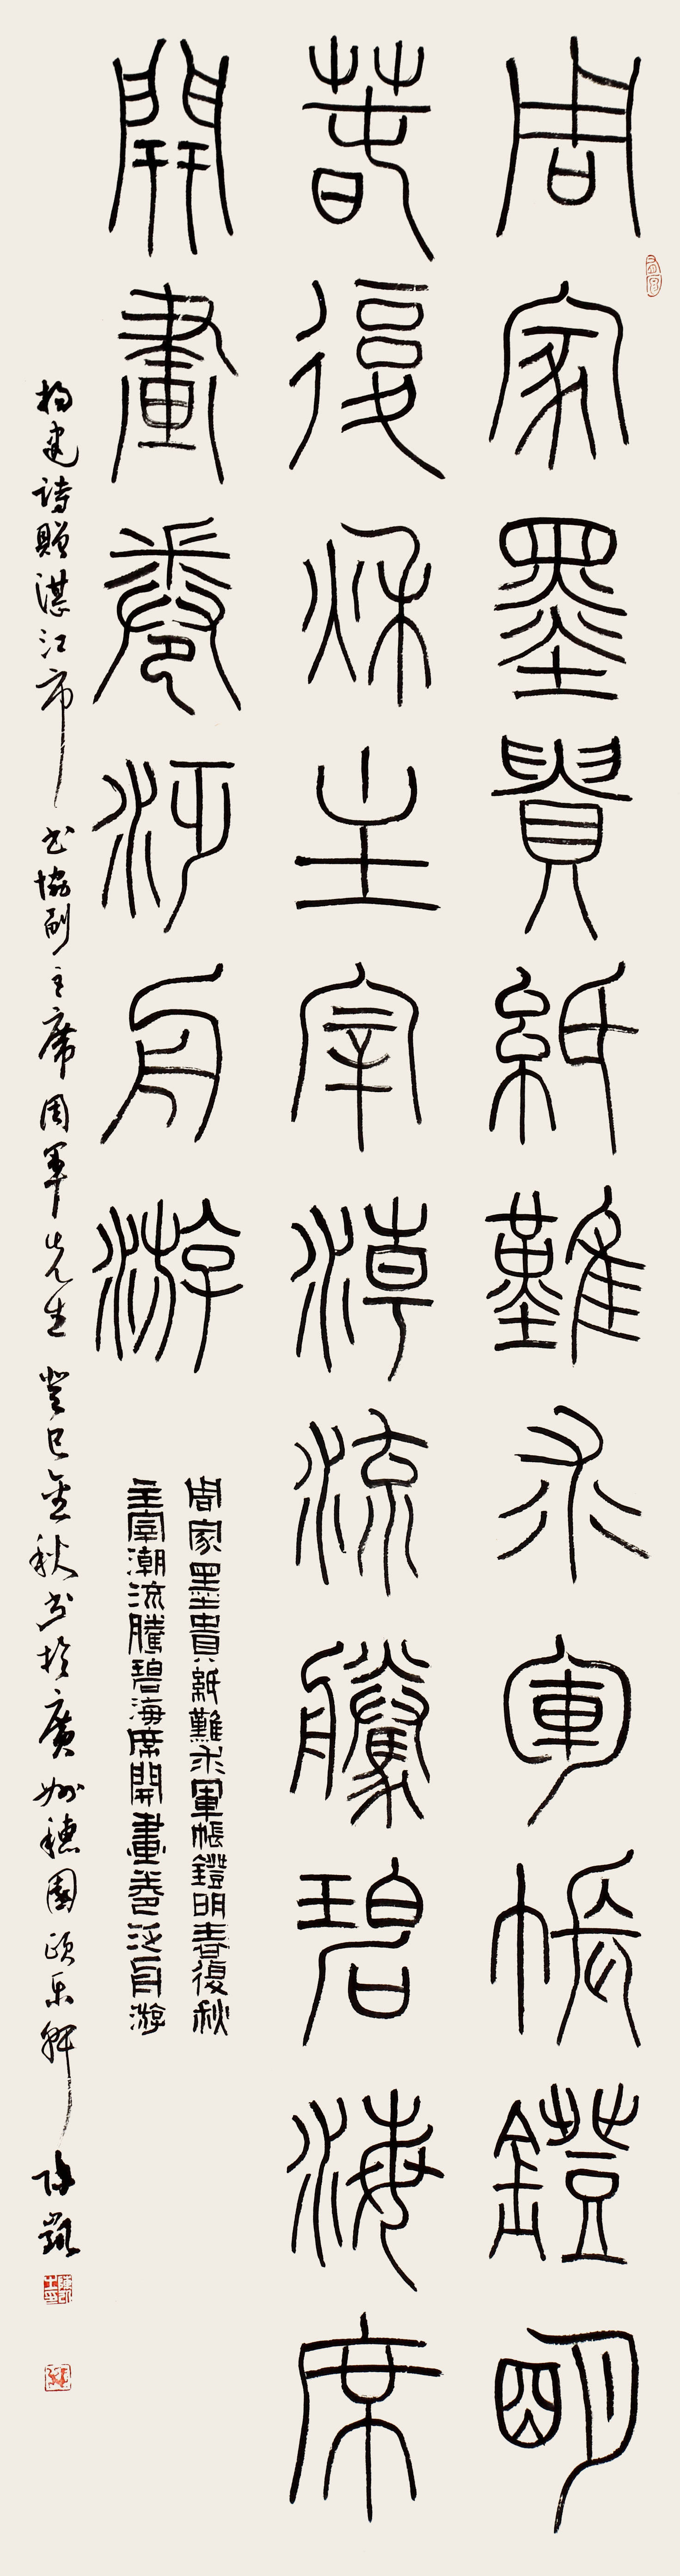 周家墨貴紙難求軍帳鐙明
春復秋主宰潮流騰碧海席
開畫卷泛舟游
周家墨貴紙難求軍帳鐙明春復秋
主宰潮流騰碧海席開畫卷泛舟游
建詩贈湛江市書協副主席周軍先生 癸巳金秋書於廣州穗園頤樂軒 陳凱